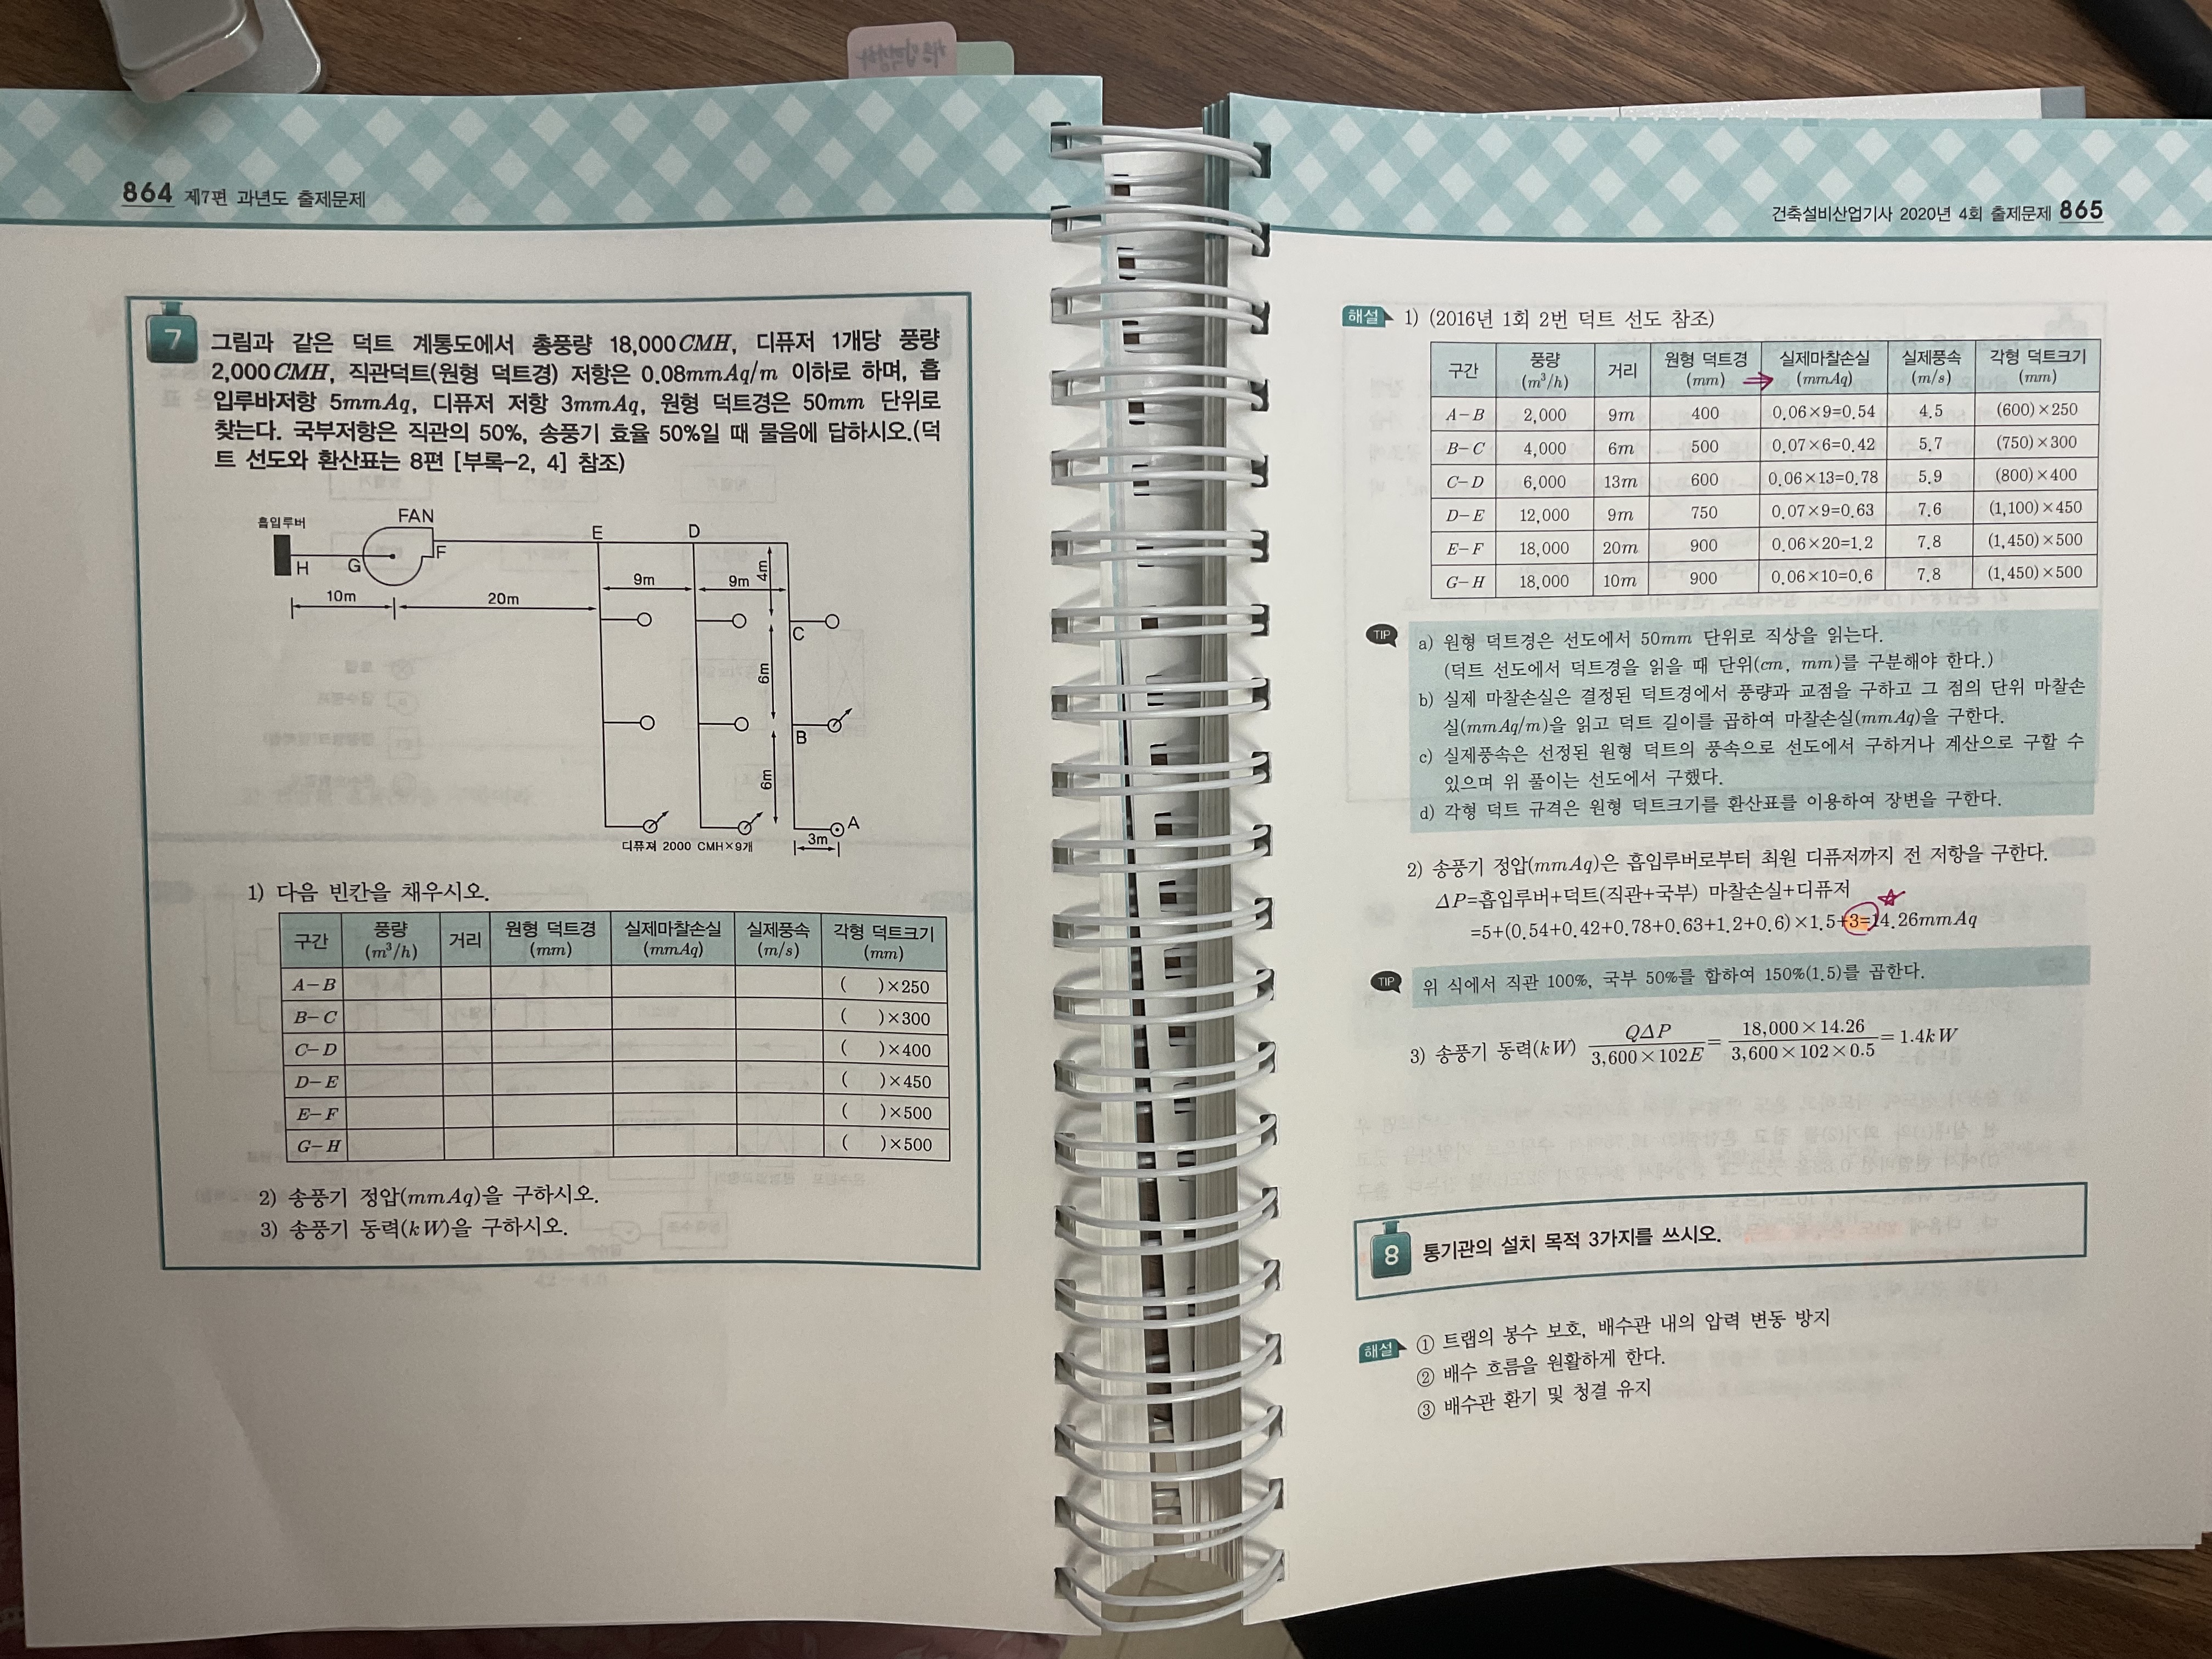 864 제7편 과년도 출제문제
7
그림과 같은 덕트 계통도에서 총풍량 18,000CMH, 디퓨저 1개당 풍량
2,000CMH, 직관덕트(원형 덕트경) 저항은 0.08mmAq/m 이하로 하며, 흡
입루바저항 5mmAq, 디퓨저 저항 3mmAq, 원형 덕트경은 50mm 단위로
찾는다. 국부저항은 직관의 50%, 송풍기 효율 50%일 때 물음에 답하시오.(덕
트 선도와 환산표는 8편 [부록-2, 4] 참조)
흡입루버
FAN
H
G
F
E
D
10m
20m
9m
9m
4m
C
6m
B
6m
A
3m
디퓨져 2000 CMH×9개
1) 다음 빈칸을 채우시오.
구간 풍량 (m³/h) 거리 원형 덕트경 (mm) 실제마찰손실 (mmAq) 실제풍속 (m/s) 각형 덕트크기 (mm)
A-B ( )×250
B-C ( )×300
C-D ( )×400
D-E ( )×450
E-F ( )×500
G-H ( )×500
2) 송풍기 정압(mmAq)을 구하시오.
3) 송풍기 동력(kW)을 구하시오.
건축설비산업기사 2020년 4회 출제문제 865
해설 1) (2016년 1회 2번 덕트 선도 참조)
구간 풍량 (m³/h) 거리 원형 덕트경 (mm) 실제마찰손실 (mmAq) 실제풍속 (m/s) 각형 덕트크기 (mm)
A-B 2,000 9m 400 0.06×9=0.54 4.5 (600)×250
B-C 4,000 6m 500 0.07×6=0.42 5.7 (750)×300
C-D 6,000 13m 600 0.06×13=0.78 5.9 (800)×400
D-E 12,000 9m 750 0.07×9=0.63 7.6 (1,100)×450
E-F 18,000 20m 900 0.06×20=1.2 7.8 (1,450)×500
G-H 18,000 10m 900 0.06×10=0.6 7.8 (1,450)×500
TIP a) 원형 덕트경은 선도에서 50mm 단위로 직상을 읽는다.
(덕트 선도에서 덕트경을 읽을 때 단위(cm, mm)를 구분해야 한다.)
b) 실제 마찰손실은 결정된 덕트경에서 풍량과 교점을 구하고 그 점의 단위 마찰손
실(mmAq/m)을 읽고 덕트 길이를 곱하여 마찰손실(mmAq)을 구한다.
c) 실제풍속은 선정된 원형 덕트의 풍속으로 선도에서 구하거나 계산으로 구할 수
있으며 위 풀이는 선도에서 구했다.
d) 각형 덕트 규격은 원형 덕트크기를 환산표를 이용하여 장변을 구한다.
2) 송풍기 정압(mmAq)은 흡입루버로부터 최원 디퓨저까지 전 저항을 구한다.
ΔP=흡입루버+덕트(직관+국부) 마찰손실+디퓨저
=5+(0.54+0.42+0.78+0.63+1.2+0.6)×1.5+3=14.26mmAq
TIP 위 식에서 직관 100%, 국부 50%를 합하여 150%(1.5)를 곱한다.
3) 송풍기 동력(kW) QΔP/3,600×102E = 18,000×14.26/3,600×102×0.5 = 1.4kW
8 통기관의 설치 목적 3가지를 쓰시오.
해설 ① 트랩의 봉수 보호, 배수관 내의 압력 변동 방지
② 배수 흐름을 원활하게 한다.
③ 배수관 환기 및 청결 유지